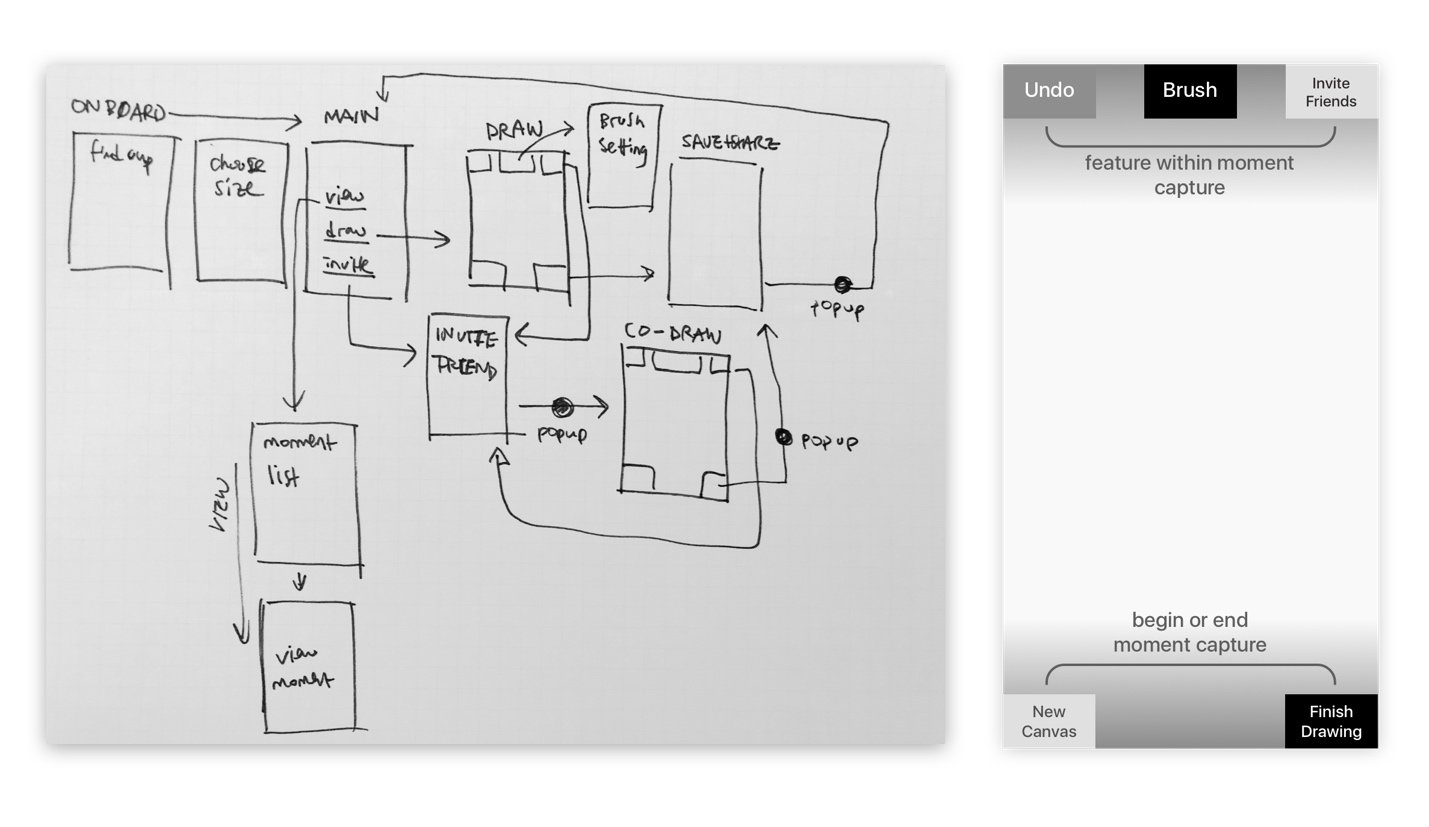 ONBOARD
MAIN
choose
size
view
draw
invite
DRAW
Brush
Setting
SAVE+SHARE
popup
INVITE
FRIEND
popup
CO-DRAW
POPUP
moment
list
VIEW
view
moment
Undo
Brush
Invite
Friends
feature within moment
capture
begin or end
moment capture
New
Canvas
Finish
Drawing